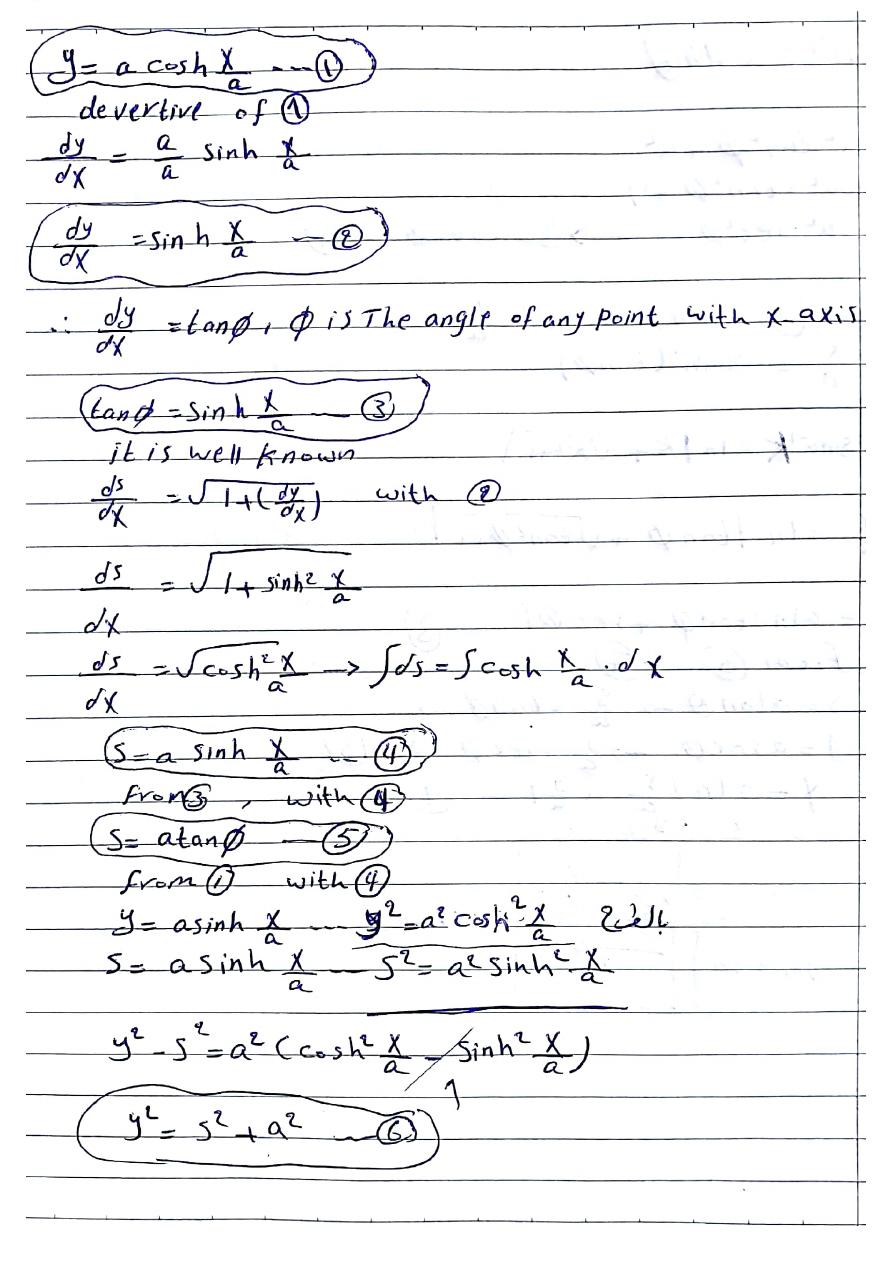 y = a cosh x/a --- ①
devertive of ①
dy/dx = a/a sinh x/a
dy/dx = sinh x/a — ②
∴ dy/dx = tanφ, φ is The angle of any point with x-axis
tanφ = sinh x/a — ③
it is well known
ds/dx = √1+(dy/dx) with ②
ds/dx = √1+ sinh² x/a
ds/dx = √cosh² x/a → ∫ds = ∫cosh x/a . dx
S = a sinh x/a -- ④
from ③, with ④
S = a tanφ — ⑤
from ① with ④
y = a sinh x/a ---- y² = a² cosh² x/a
S = a sinh x/a — S² = a² sinh² x/a
y² - S² = a² (cosh² x/a - sinh² x/a)
1
y² = S² + a² — ⑥